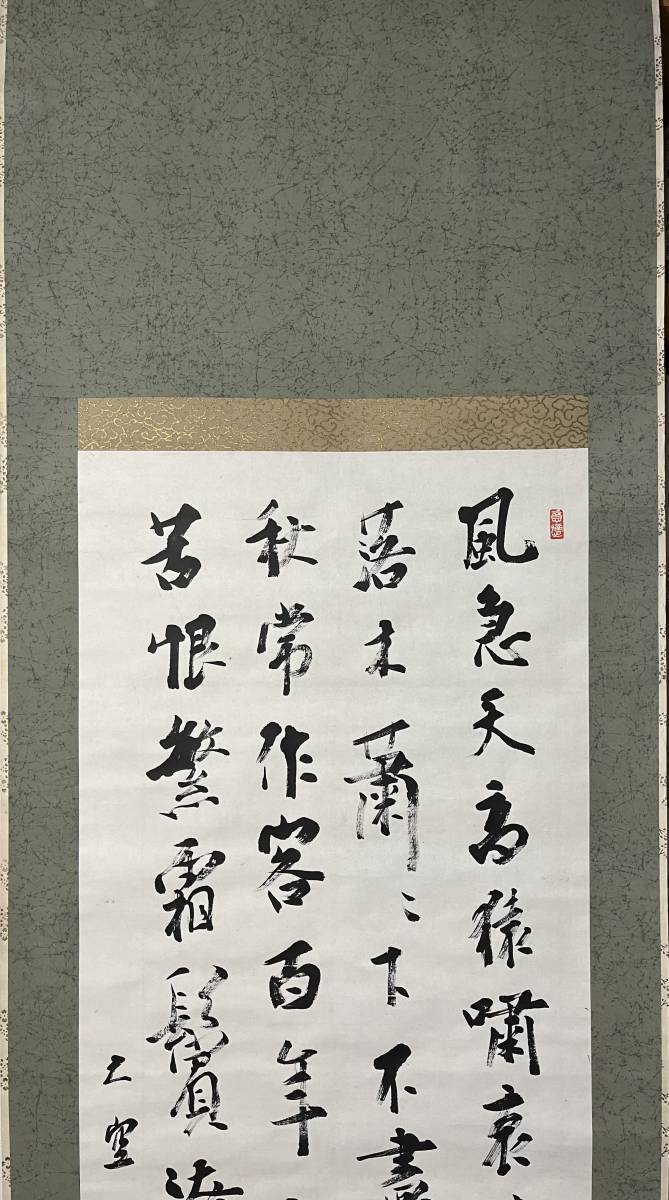 風急天高猿嘯哀
落木蕭〻下不盡
秋常作客百年
苦恨繁霜鬢潦